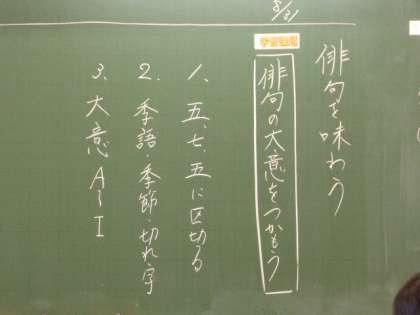 俳句を味わう
学習課題
俳句の大意をつかもう
1、五、七、五に区切る
2、季語・季節・切れ字
3、大意 A~I